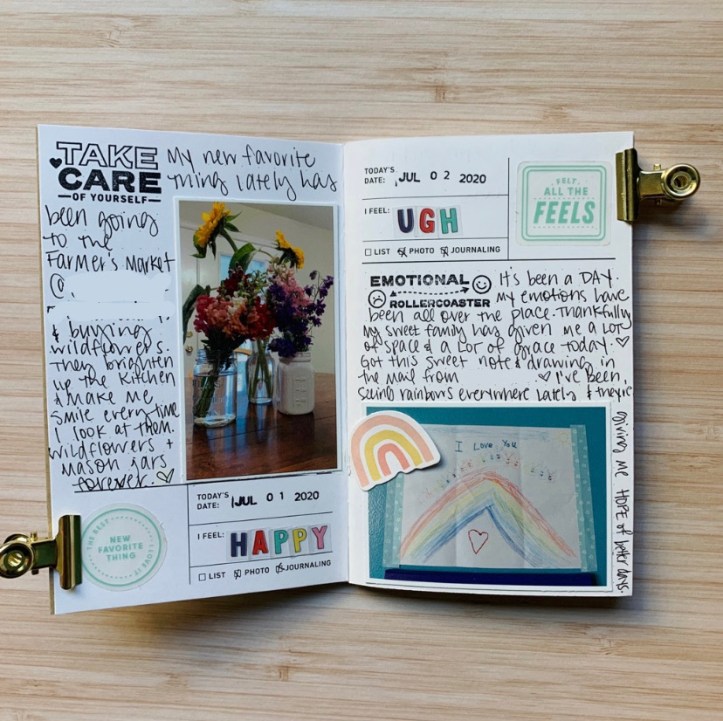 TAKE
CARE
OF YOURSELF
My new favorite
thing lately has
been going
to the
Farmer's Market
@
& buying
wildflowers.
They brighten
up the kitchen
& make me
smile every time
I look at them.
wildflowers +
mason jars
forever.
NEW
FAVORITE
THING
TODAY'S
DATE: JUL 01 2020
I FEEL: HAPPY
LIST PHOTO JOURNALING
TODAY'S
DATE: JUL 02 2020
I FEEL: UGH
LIST PHOTO JOURNALING
ALL THE
FEELS
EMOTIONAL
ROLLERCOASTER
It's been a DAY.
My emotions have
been all over the place. Thankfully
my sweet family has given me a lot
of space & a lot of grace today.
Got this sweet note & drawing in
the mail from
I've been
seeing rainbows everywhere lately & they're
giving me HOPE of better days.
I Love You